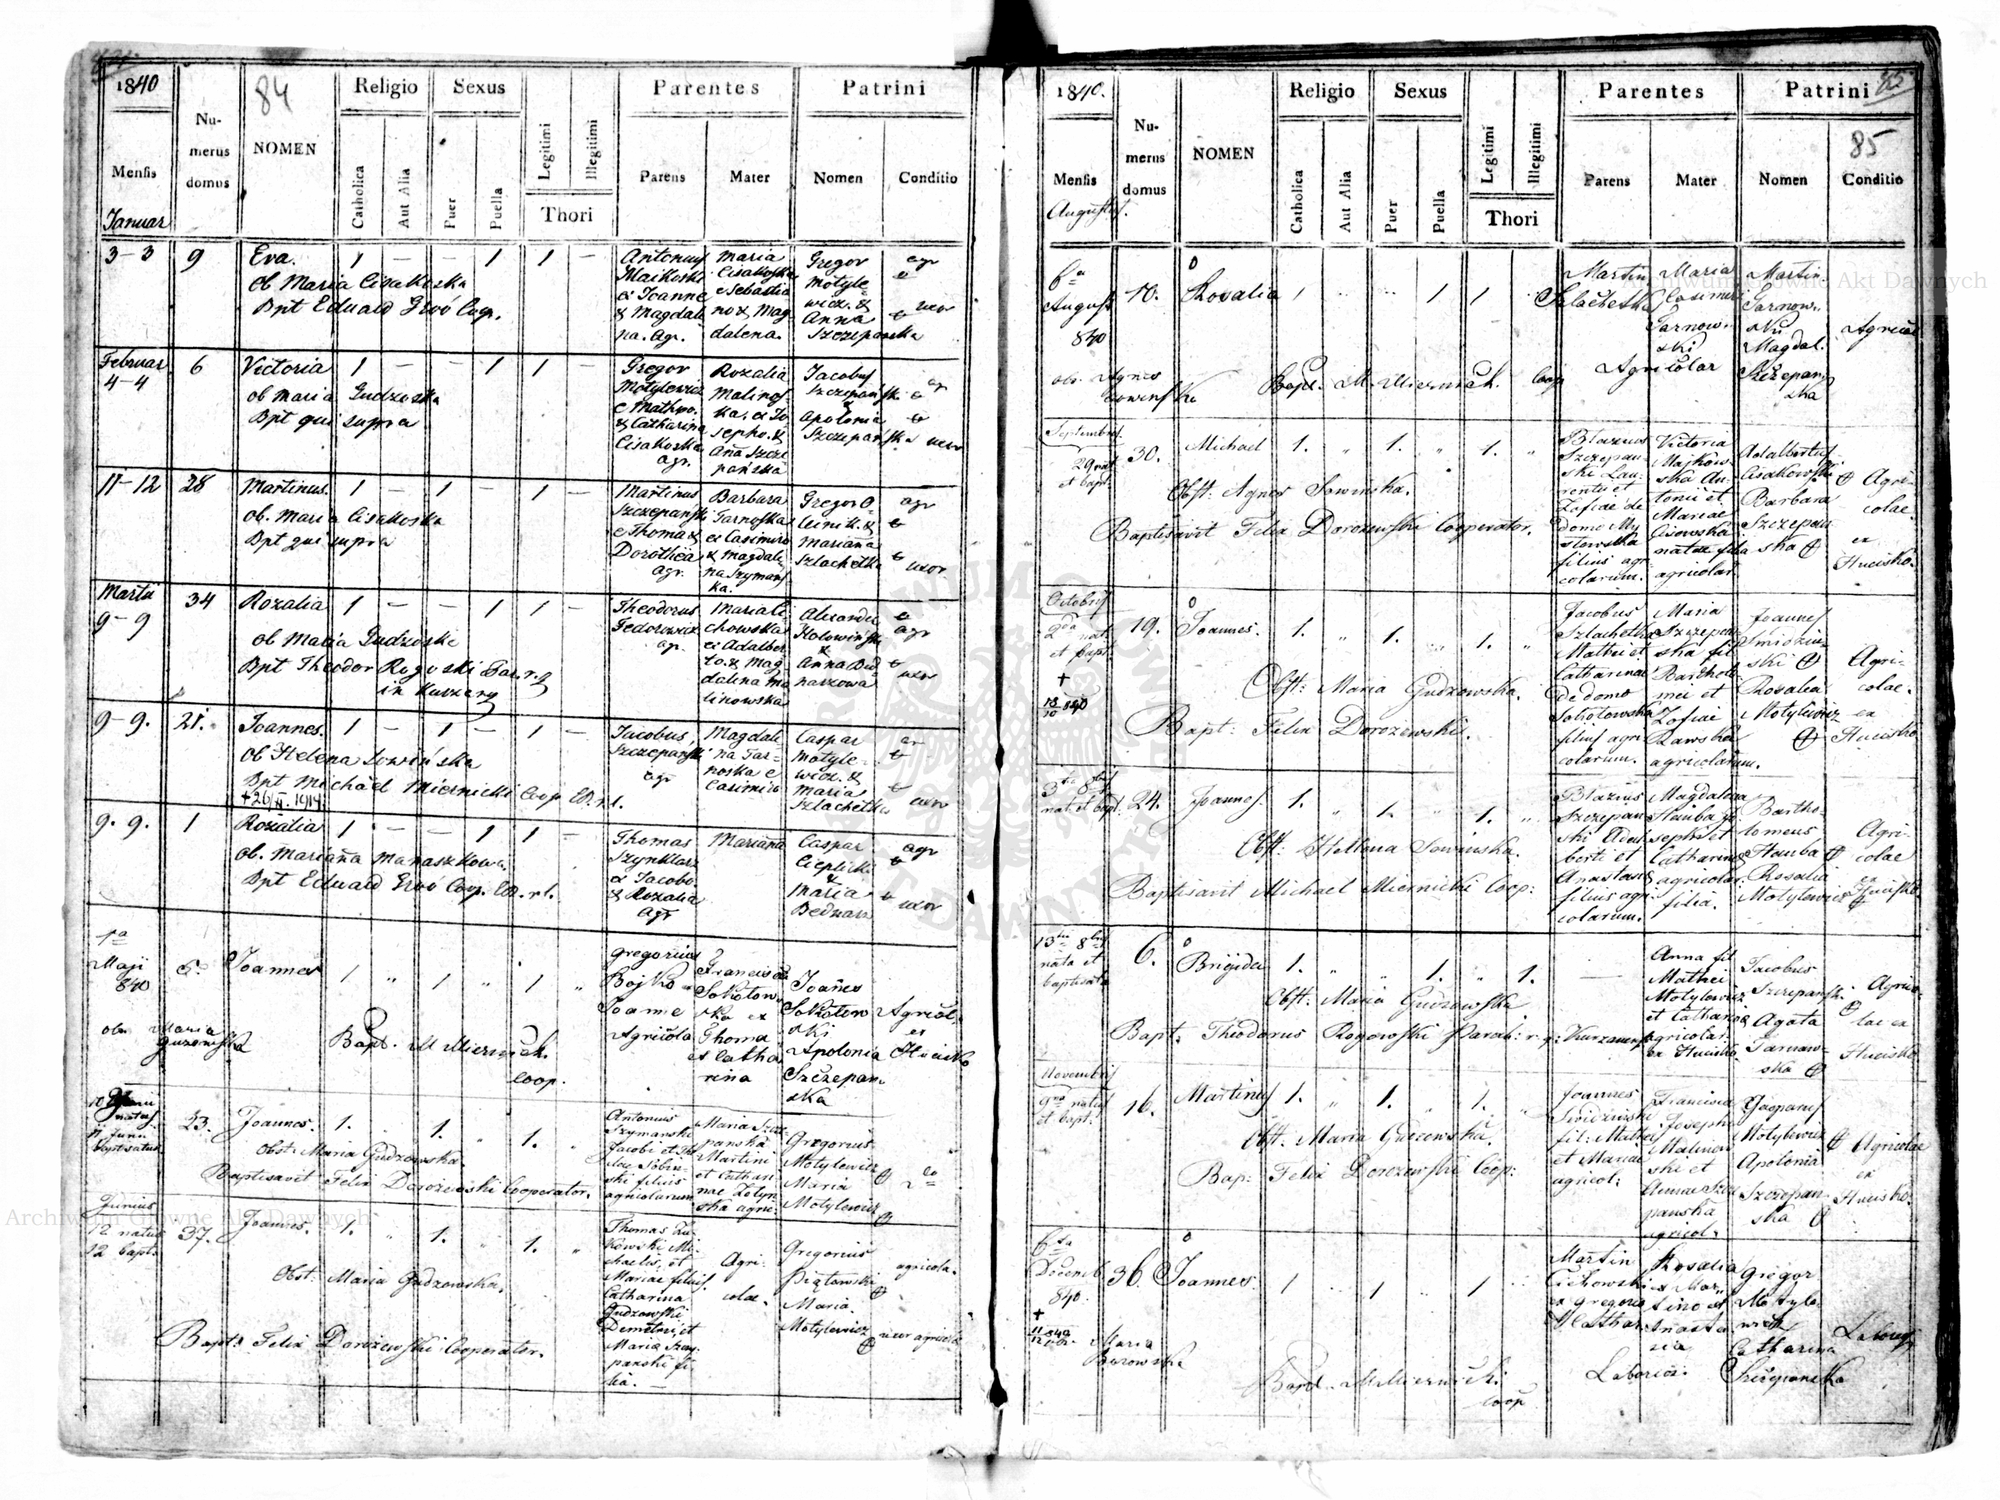 1840
84
Religio
Sexus
Parentes
Patrini
Mensis
Nu-
merus
domus
NOMEN
Catholica
Aut Alia
Puer
Puella
Legitimi
Illegitimi
Thori
Parens
Mater
Nomen
Conditio
Januar
3-3 9 Eva. 1 — — 1 1 —
ob Maria Cisakoska
Bpt Eduard Groó Coop.
Antonius
Maikoski
ex Joanne
& Magdale
na. agr.
Maria
Cisakoska
e Sebastia
no & Mag-
dalena.
Gregor
Motyle
wicz. &
Anna
Szczepanska
agr
uxor
Februar
4-4 6 Victoria 1 — — 1 1 —
ob Maria Gudzoska
Bpt qui supra
Gregor
Motylewicz
e Matheo.
& Catharina
Cisakoska
agr.
Rozalia
Malinos
ka. ex Jo
sepho. &
Aña Szcze
pańska
Jacobus
Szczepański
&
Apolonia
Szczepańska
uxor
11-12 28 Martinus. 1 — 1 — 1 —
ob. Maria Cisakoska
Bpt qui supra
Martinus
Szczepański
e Thoma &
Dorothea
agr.
Barbara
Tarnoska
ex Casimiro
& Magdale
na Szymans
ka.
Gregor O-
leinik. &
Marianna
Szlachetka
agr
uxor
Martii
9-9 34 Rozalia 1 — — 1 1 —
ob Maria Gudzoski
Bpt Theodor Rogoski Par. r. g
in Kurzany
Theodorus
Fedorowicz
agr.
Maria Ci
chowska
ex Adalber
to. & Mag
dalena Ma
linowska
Alexander
Holowiński
&
Anna Bed
naszowa
agr
uxor
9-9. 21. Joannes. 1 — 1 — 1 —
ob Helena Sowińska
Bpt Michael Miernicki Coop. EB. r. l.
+ 26/II. 1914
Jacobus
Szczepański
agr
Magdale
na Tar-
noska e
Casimiro
Caspar
Motyle-
wicz. &
Maria
Szlachetka
uxor
9. 9. 1 Rozalia 1 — — 1 1 —
ob. Marianna Manaszkowa
Bpt Eduard Groó Coop. EB. r. l.
Thomas
Szynklarz
ex Jacobo
& Rozalia
agr
Marianna
Caspar
Cieplicki
&
Maria
Bednarz
agr
uxor
1a
Maji
840
5. Joannes 1 " 1 " 1 "
obs Maria
Guzowska
Bapt. M Miernicki.
Coop.
Gregorius
Bojko
Joanne
Agricola
Francisca
Sokołow
ska ex
Thoma
et Catha
rina
Joanes
Sokołow
ski
Apolonia
Szczepan
ska
Agricol.
ex
Hucisko
10 Junii
natus
11 Junii
baptisatus
23. Joannes. 1. " 1. " 1. "
Obst: Maria Gudzowska.
Baptisavit Felix Dorożewski Cooperator.
Antonius
Szymanski
Jacobi et
filius
agricolarum
Maria Szcze
panska
Martini
et Cathari
nae
Gregorius
Motylewicz
Maria
Motylewicz
Junius
12 natus
12 bapt:
37. Joannes. 1. " 1. " 1. "
Obst: Maria Gudzowska.
Bapt: Felix Dorożewski Cooperator.
Thomas
Mi-
chaelis, et
Mariae filius
Catharina
Gudzowski
Demetri, et
Maria Szcze
panski fi
lia. —
Agri-
colae.
Gregorius
Piątowski
Maria
Motylewicz
agricola.
uxor agricolae
1840.
85
85
Religio
Sexus
Parentes
Patrini
Mensis
Nu-
merus
domus
NOMEN
Catholica
Aut Alia
Puer
Puella
Legitimi
Illegitimi
Thori
Parens
Mater
Nomen
Conditio
Augustus.
6a
August
840
10. Rosalia 1 " " 1 1 "
obs. Agnes
Sowinska
Bapt. M. Miernicki. Coop
Martin
Szlachetka
Maria
Casimir
Tarnow-
ski
Agricolar
Martin
Tarnow-
ski
Magdal.
Szczepan
ska
Agricol
Septembris
29 nat
et bapt.
30. Michael 1. " 1. " 1. "
Obst: Agnes Sowinska.
Baptisavit Felix Dorożewski Cooperator.
Blazius
Szczepan-
ski Lau-
rentii et
Zofiae de
domo My
słowska
filius agri
colarum.
Victoria
Majkow-
ska An-
tonii et
Mariae
Cisowska
nata fila
agricolar.
Adalbertus
Cisakowski
Barbara
Szczepan
ska
Agri-
colae
ex
Hucisko.
Octobris
2da nat
et bapt.
†
15/10 840
19. Joannes. 1. " 1. " 1. "
Obst: Maria Gudzowska.
Bapt: Felix Dorożewski.
Jacobus
Szlachetka
Mathei et
Catharinae
de domo
Sokołowska
filius agri
colarum.
Maria
Szczepan
ska fil
Bartholo
mei et
Zofiae
Rawska
agricolarum.
Joannes
Smidzin-
ski
Rosalia
Motylewicz
Agri-
colae.
ex
Hucisko
nat et bapt. 24. Joannes. 1. " 1. " 1. "
Obst: Hellena Sowinska.
Baptisavit Michael Miernicki Coop:
Blazius
Szczepan
ski Adal
berti et
Anastasia
filius agri
colarum.
Magdalena
Hauba Jo
sephi et
Catharina
agricolar
filia.
Bartho-
lomeus
Hauba
Rosalia
Motylewicz
Agri-
colae
ex
Hucisko
13tia 8bris
nata et
baptisata
6. Brigida 1. " " 1. " 1.
Obst: Maria Gudzowska
Bapt: Theodorus Rogowski Paroch: r. g: Kurzanens.
Anna fil
Mathei
Motylewicz
et Catharina
agricolar.
ex Hucisko
Jacobus
Szczepanski
Agata
Tarnaw-
ska
Agrico-
lae ex
Hucisko
Novembris
9na natus
et bapt.
16. Martinus 1. " 1. " 1. "
Obst: Maria Gudzowska.
Bap: Felix Dorożewski Coop:
Joannes
Swidzinski
fil: Mathei
et Mariae
agricol:
Francisca
Josephi
Malinow
ski et
Annae Szcze
panska
agricol.
Gasparus
Motylewicz
Apolonia
Szczepan-
ska
Agricolae
ex
Hucisko.
6ta
Decemb
840.
†
36. Joannes 1 " 1 " 1 "
Maria
Borowska
Bapt. M Miernicki
Coop
Martin
Cichowski
ex Gregorio
& Cathar
Rosalia
ex Mar-
tino et
Anasta
sia
Laborios.
Gregor
Motyle
wicz
Catharina
Szczepanska
Laborios
Archiwum Główne Akt Dawnych
Archiwum Główne Akt Dawnych
ARCHIWUM GŁÓWNE AKT DAWNYCH